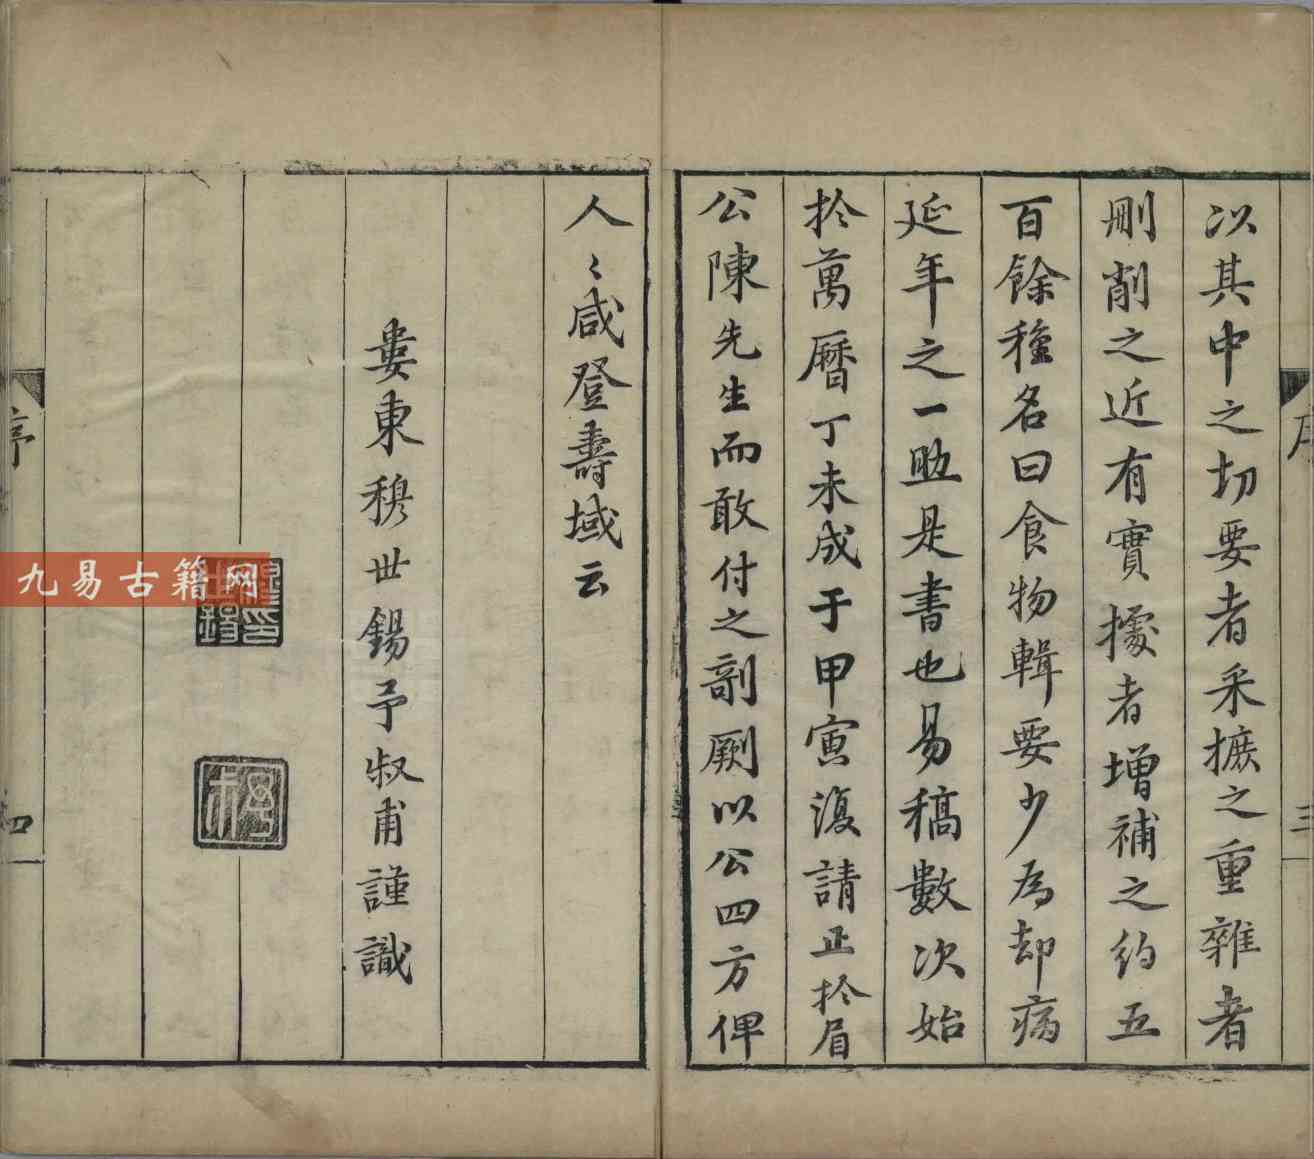 以其中之切要者采摭之重雜者
刪削之近有實據者增補之約五
百餘種名曰食物輯要少為却病
延年之一助是書也易稿數次始
扵萬曆丁未成于甲寅復請正扵眉
公陳先生而敢付之剞劂以公四方俾
人〻咸登壽域云
婁東穆世錫予叔甫謹識
序
三
序
四
九易古籍网